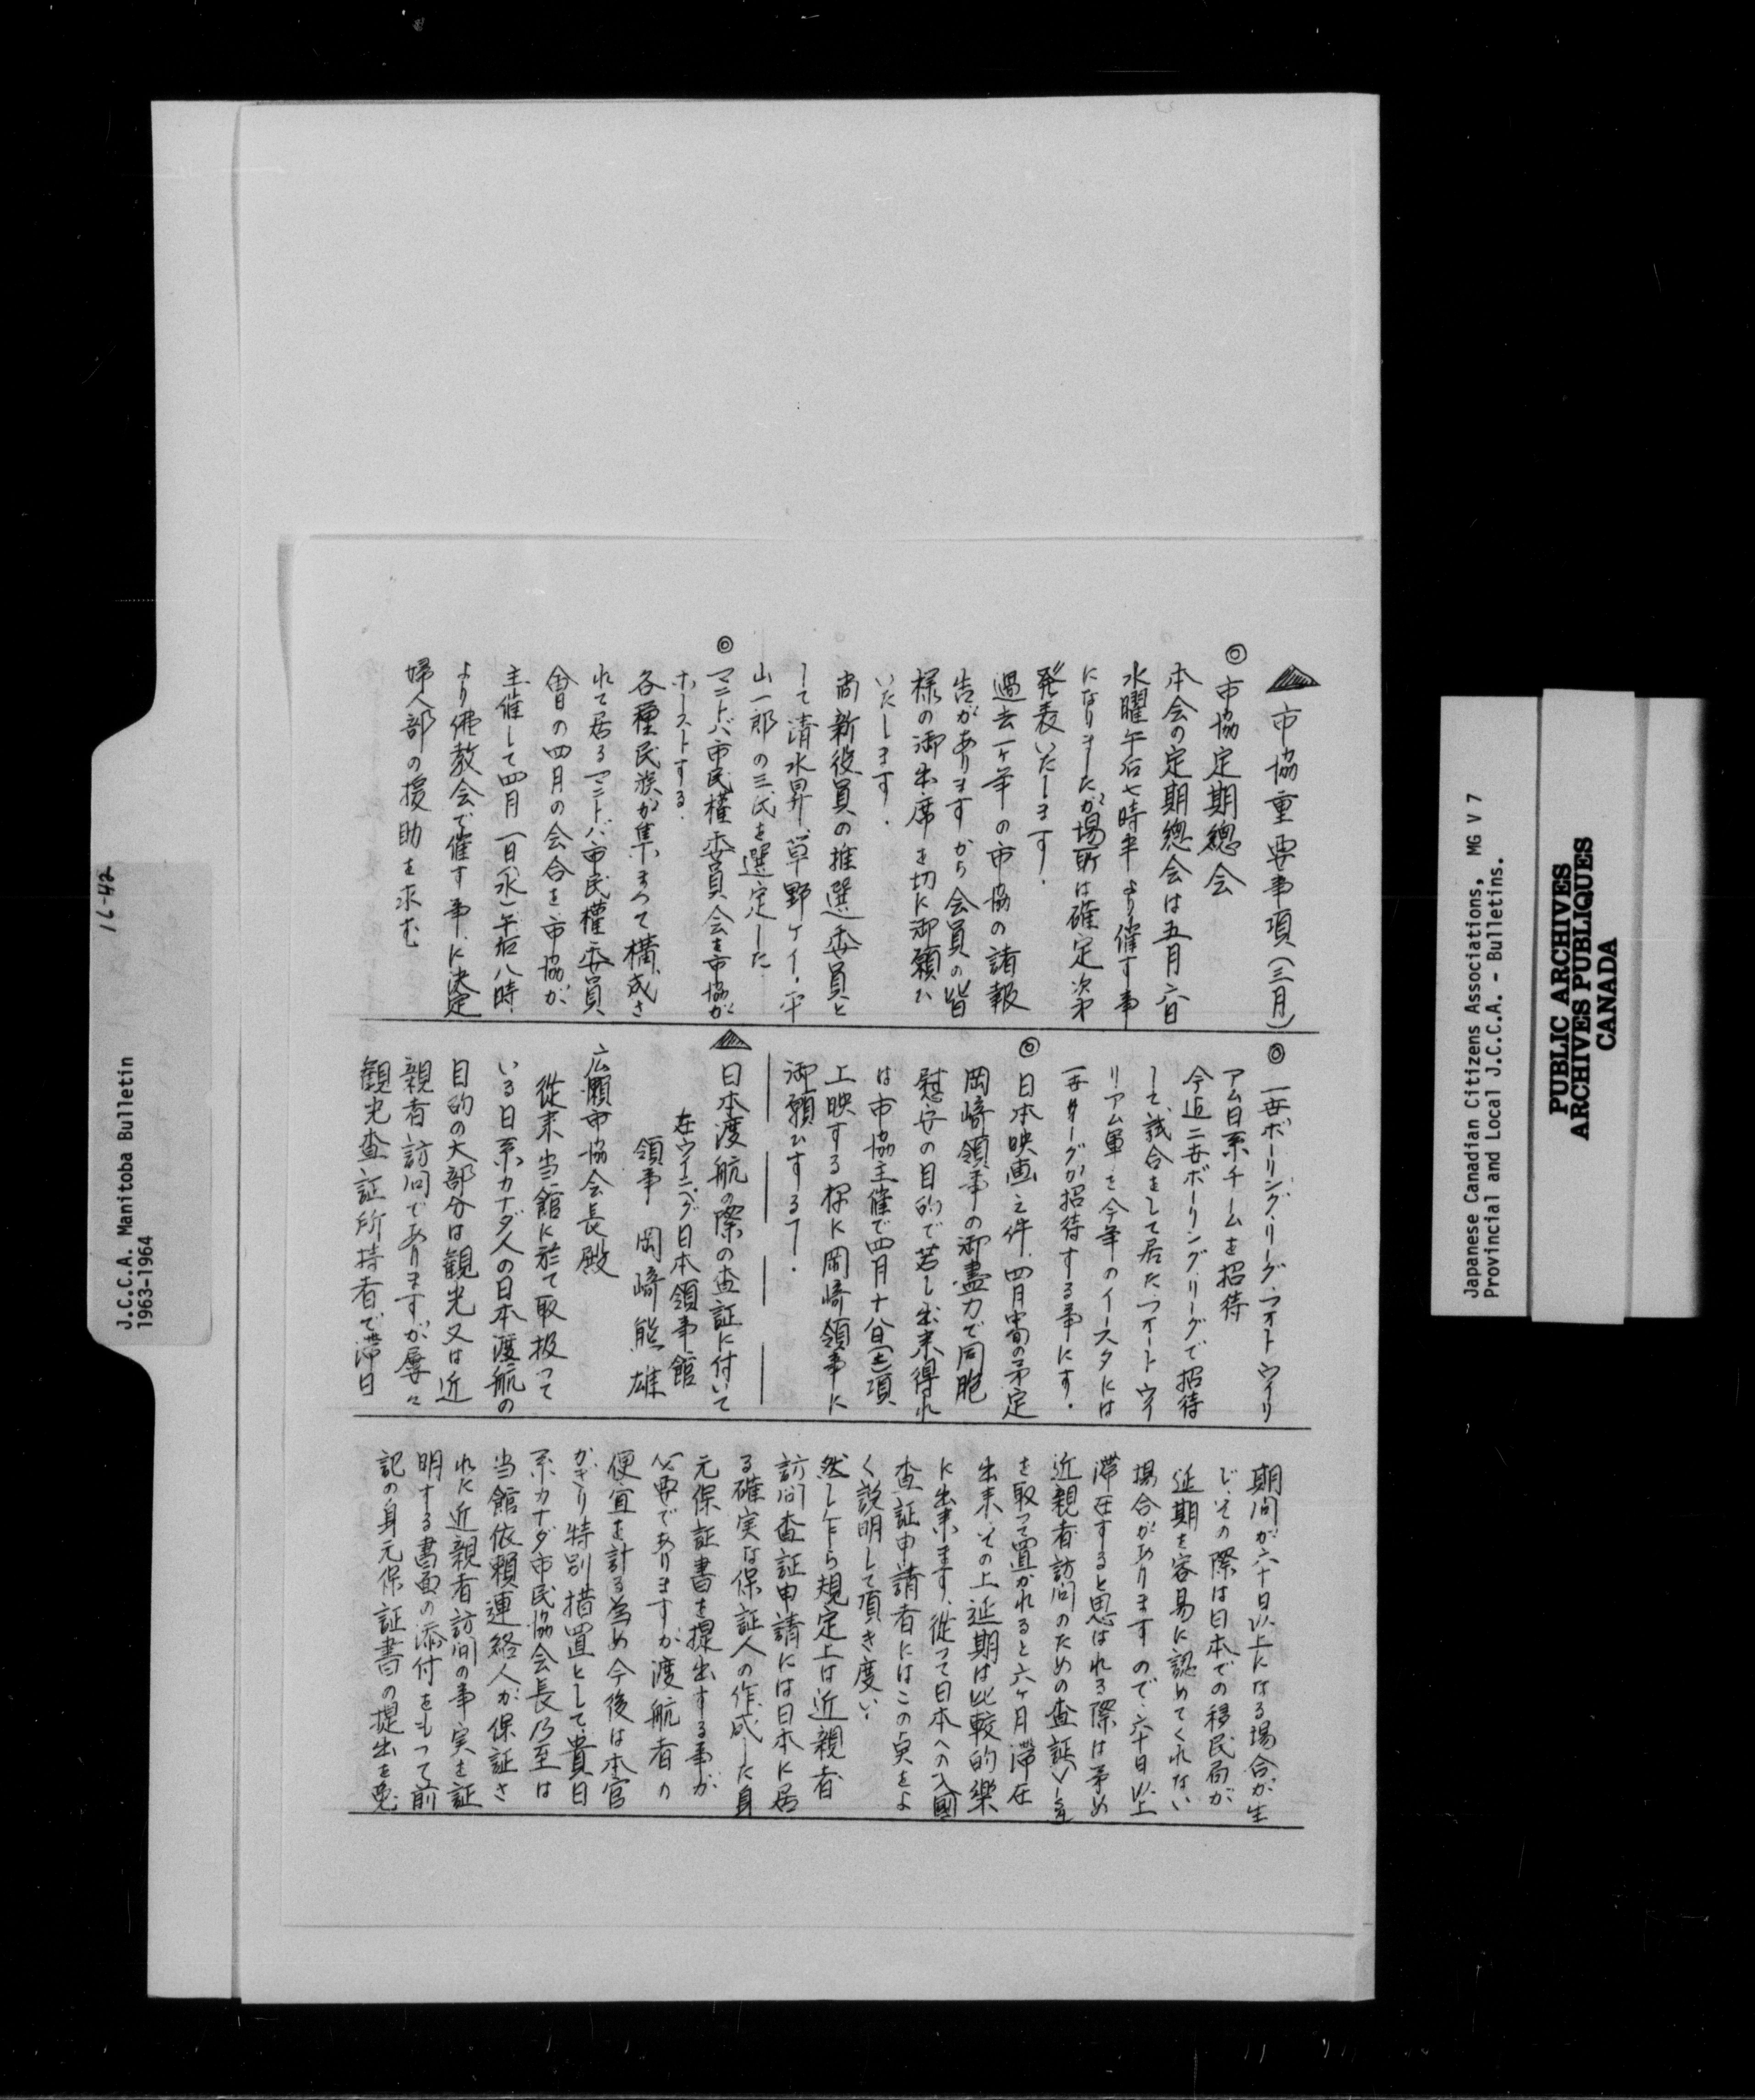 ▲市協重要事項(三月)
◎市協定期總会
本会の定期總会は五月六日
水曜午后七時半より催す事
になりましたが場所は確定次第
発表いたします.
過去一ヶ年の市協の諸報
告がありますから会員の皆
様の御出席を切に御願ひ
いたします.
尚新役員の推選委員と
して清水昇、草野ケイ、平
山一郎の三氏を選定した
◎マニトバ市民權委員会を市協が
ホーストする.
各種民族が集まって構成さ
れて居るマニトバ市民權委員
會の四月の会合を市協が
主催して四月一日(水)午后八時
より佛教会で催す事に決定
婦人部の援助を求む
◎一世ボーリング・リーグ、フォートウイリ
アム日系チームを招待
今迄二世ボーリング・リーグで招待
して試合をして居たフォートウイ
リアム軍を今年のイースタには
一世リーグが招待する事にす.
◎日本映画之件、四月中旬の予定
岡崎領事の御盡力で同胞
慰安の目的で若し出来得れ
ば市協主催で四月十八日(土)頃
上映する様に岡崎領事に
御願ひする了.
▲日本渡航の際の査証に付いて
在ウイニペグ日本領事館
領事 岡崎熊雄
広瀬市協会長殿
従来当館に於て取扱って
いる日系カナダ人の日本渡航の
目的の大部分は観光又は近
親者訪問でありますが屡々
観光査証所持者で滞日
期間が六十日以上になる場合が生
じ、その際は日本での移民局が
延期を容易に認めてくれない
場合がありますので、六十日以上
滞在すると思はれる際は予め
近親者訪問のための査証
を取って置かれると六ヶ月滞在
出来、その上延期は比較的樂
に出来ます、従って日本への入國
査証申請者にはこの点をよ
く説明して頂き度い
然し乍ら規定上は近親者
訪問査証申請には日本に居
る確実な保証人の作成した身
元保証書を提出する事が
必要でありますが渡航者の
便宜を計る為め今後は本官
かぎり特別措置として、貴日
系カナダ市民協会長乃至は
当館依頼連絡人が保証さ
れた近親者訪問の事実を証
明する書面の添付をもって前
記の身元保証書の提出を免
16-42
J.C.C.A. Manitoba Bulletin
1963-1964
Japanese Canadian Citizens Associations, MG V 7
Provincial and Local J.C.C.A. - Bulletins.
PUBLIC ARCHIVES
ARCHIVES PUBLIQUES
CANADA